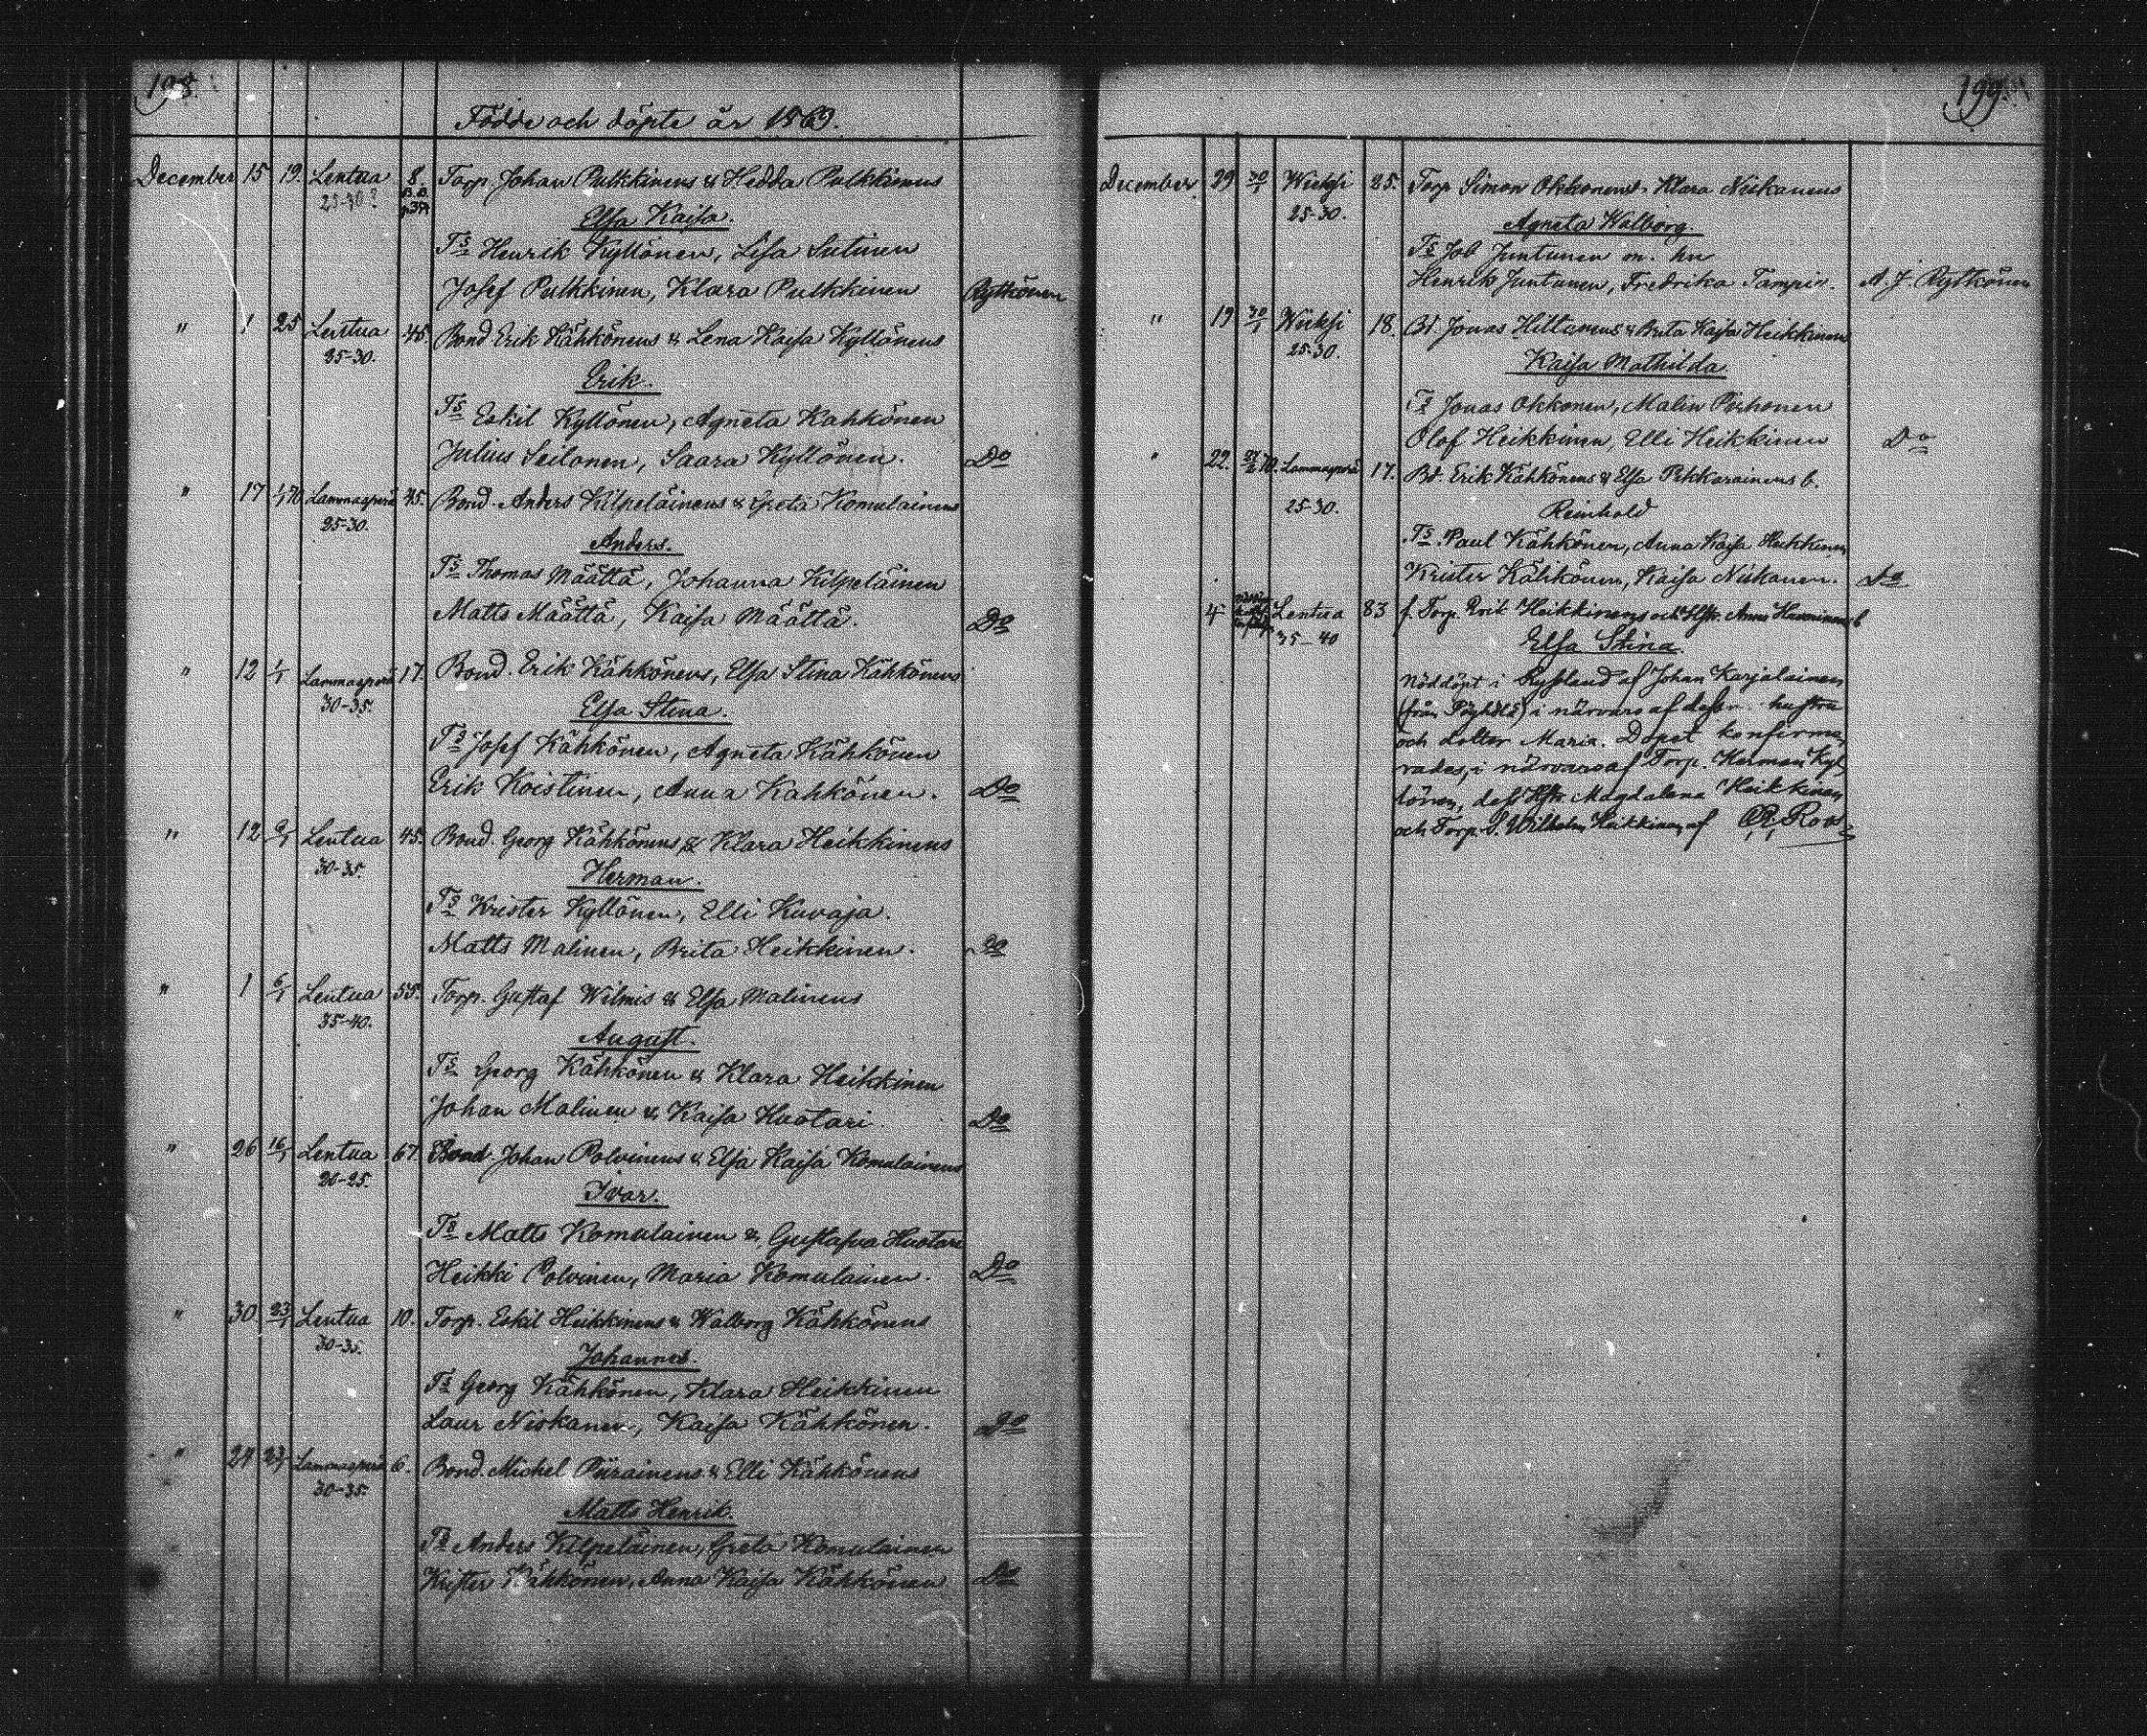 198.
Födde och döpte år 1869.
December 15 19. Lentua 8. Torp. Johan Pulkkinens & Hedda Pulkkinens
25-30?
Elsa Kaisa.
Ts Henrik Kyllönen, Lisa Sutinen
Josef Pulkkinen, Klara Pulkkinen Rytkönen
" 1 25 Lentua 45. Bond Erik Kähkönens & Lena Kaisa Kyllönens
25-30.
Erik.
Ts Eskil Kyllönen, Agneta Kähkönen
Julius Seilonen, Saara Kyllönen. Do
" 17 1/1 70. Lammasperä 45. Bond. Anders Kilpeläinens & Greta Komulainens
25-30.
Anders.
Ts Thomas Määttä, Johanna Kilpeläinen
Matts Määttä, Kaisa Määttä. Do
" 12 1/1 Lammasperä 17. Bond. Erik Kähkönens, Elsa Stina Kähkönens
30-35.
Elsa Stina.
Ts Josef Kähkönen, Agneta Kähkönen
Erik Koistinen, Anna Kähkönen. Do
" 12 Lentua 45. Bond. Georg Kähkönens & Klara Heikkinens
30-35.
Herman.
Ts Krister Kyllönen, Elli Kuvaja.
Matts Malinen, Brita Heikkinen. Do
" 1 6/1 Lentua 55. Torp. Gustaf Wilmis & Elsa Malinens
35-40.
August.
Ts Georg Kähkönen & Klara Heikkinen
Johan Malinen & Kaisa Huotari. Do
" 26 16/1 Lentua 67. Bond. Johan Polvinens & Elsa Kaisa Komulainens
20-25.
Ivar.
Ts Matts Komulainen & Gustafva Huotari
Heikki Polvinen, Maria Komulainen. Do
" 30 23/1 Lentua 10. Torp. Eskil Heikkinens & Walborg Kähkönens
30-35.
Johannes.
Ts Georg Kähkönen, Klara Heikkinen
Laur Niskanen, Kaisa Kähkönen. Do
" 24 23/1 Lammasperä 6. Bond. Michel Piirainens & Elli Kähkönens
30-35.
Matts Henrik.
Ts Anders Kilpeläinen, Greta Komulainen
Krister Kähkönen, Anna Kaisa Kähkönen Do
199.
December 29 30/1 Wieksi 25. Torp. Simon Okkonens & Klara Niskanens
25-30.
Agneta Walborg.
Ts Job Juntunen m. hu
Henrik Juntunen, Fredrika Tampio. A. J. Rytkönen
" 19 30/1 Wieksi 18. Bd. Jonas Hiltunens & Brita Kaisa Heikkinens
25-30.
Kaisa Mathilda
Ts Jonas Okkonen, Malin Pirhonen
Olof Heikkinen, Elli Heikkinen Do
" 22. 70. Lammasperä 17. Bd. Erik Kähkönens & Elsa Pekkarainens b.
25-30. Reinhold
Ts Paul Kähkönen, Anna Kaisa Heikkinen
Krister Kähkönen, Kaisa Niskanen. Do
4 Lentua 83 f. Torp. Erik Heikkinens och Hstr. Anna Hanninens b
35-40 Elsa Stina.
nöddöpt i Ryssland af Johan Karjalainen
i närvaro af dess hustru
och dotter Maria. Dopet konfirme-
rades, i närvaro af Torp. Herman Kyl-
lönen, dess Hstr. Magdalena Heikkinen
och Torp. S. Wilhelm Heikkinen af Roos